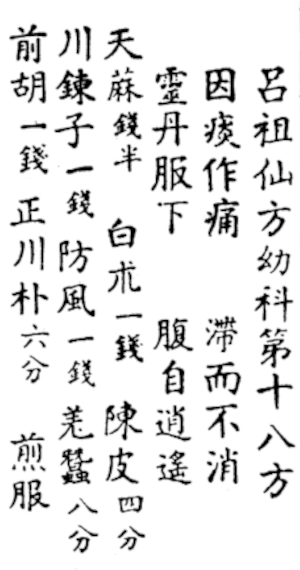 呂祖仙方幼科第十八方
因痰作痛 滯而不消
靈丹服下 腹自逍遙
天蔴錢半 白朮一錢 陳皮四分
川鍊子一錢 防風一錢 羌蠶八分
前胡一錢 正川朴六分 煎服